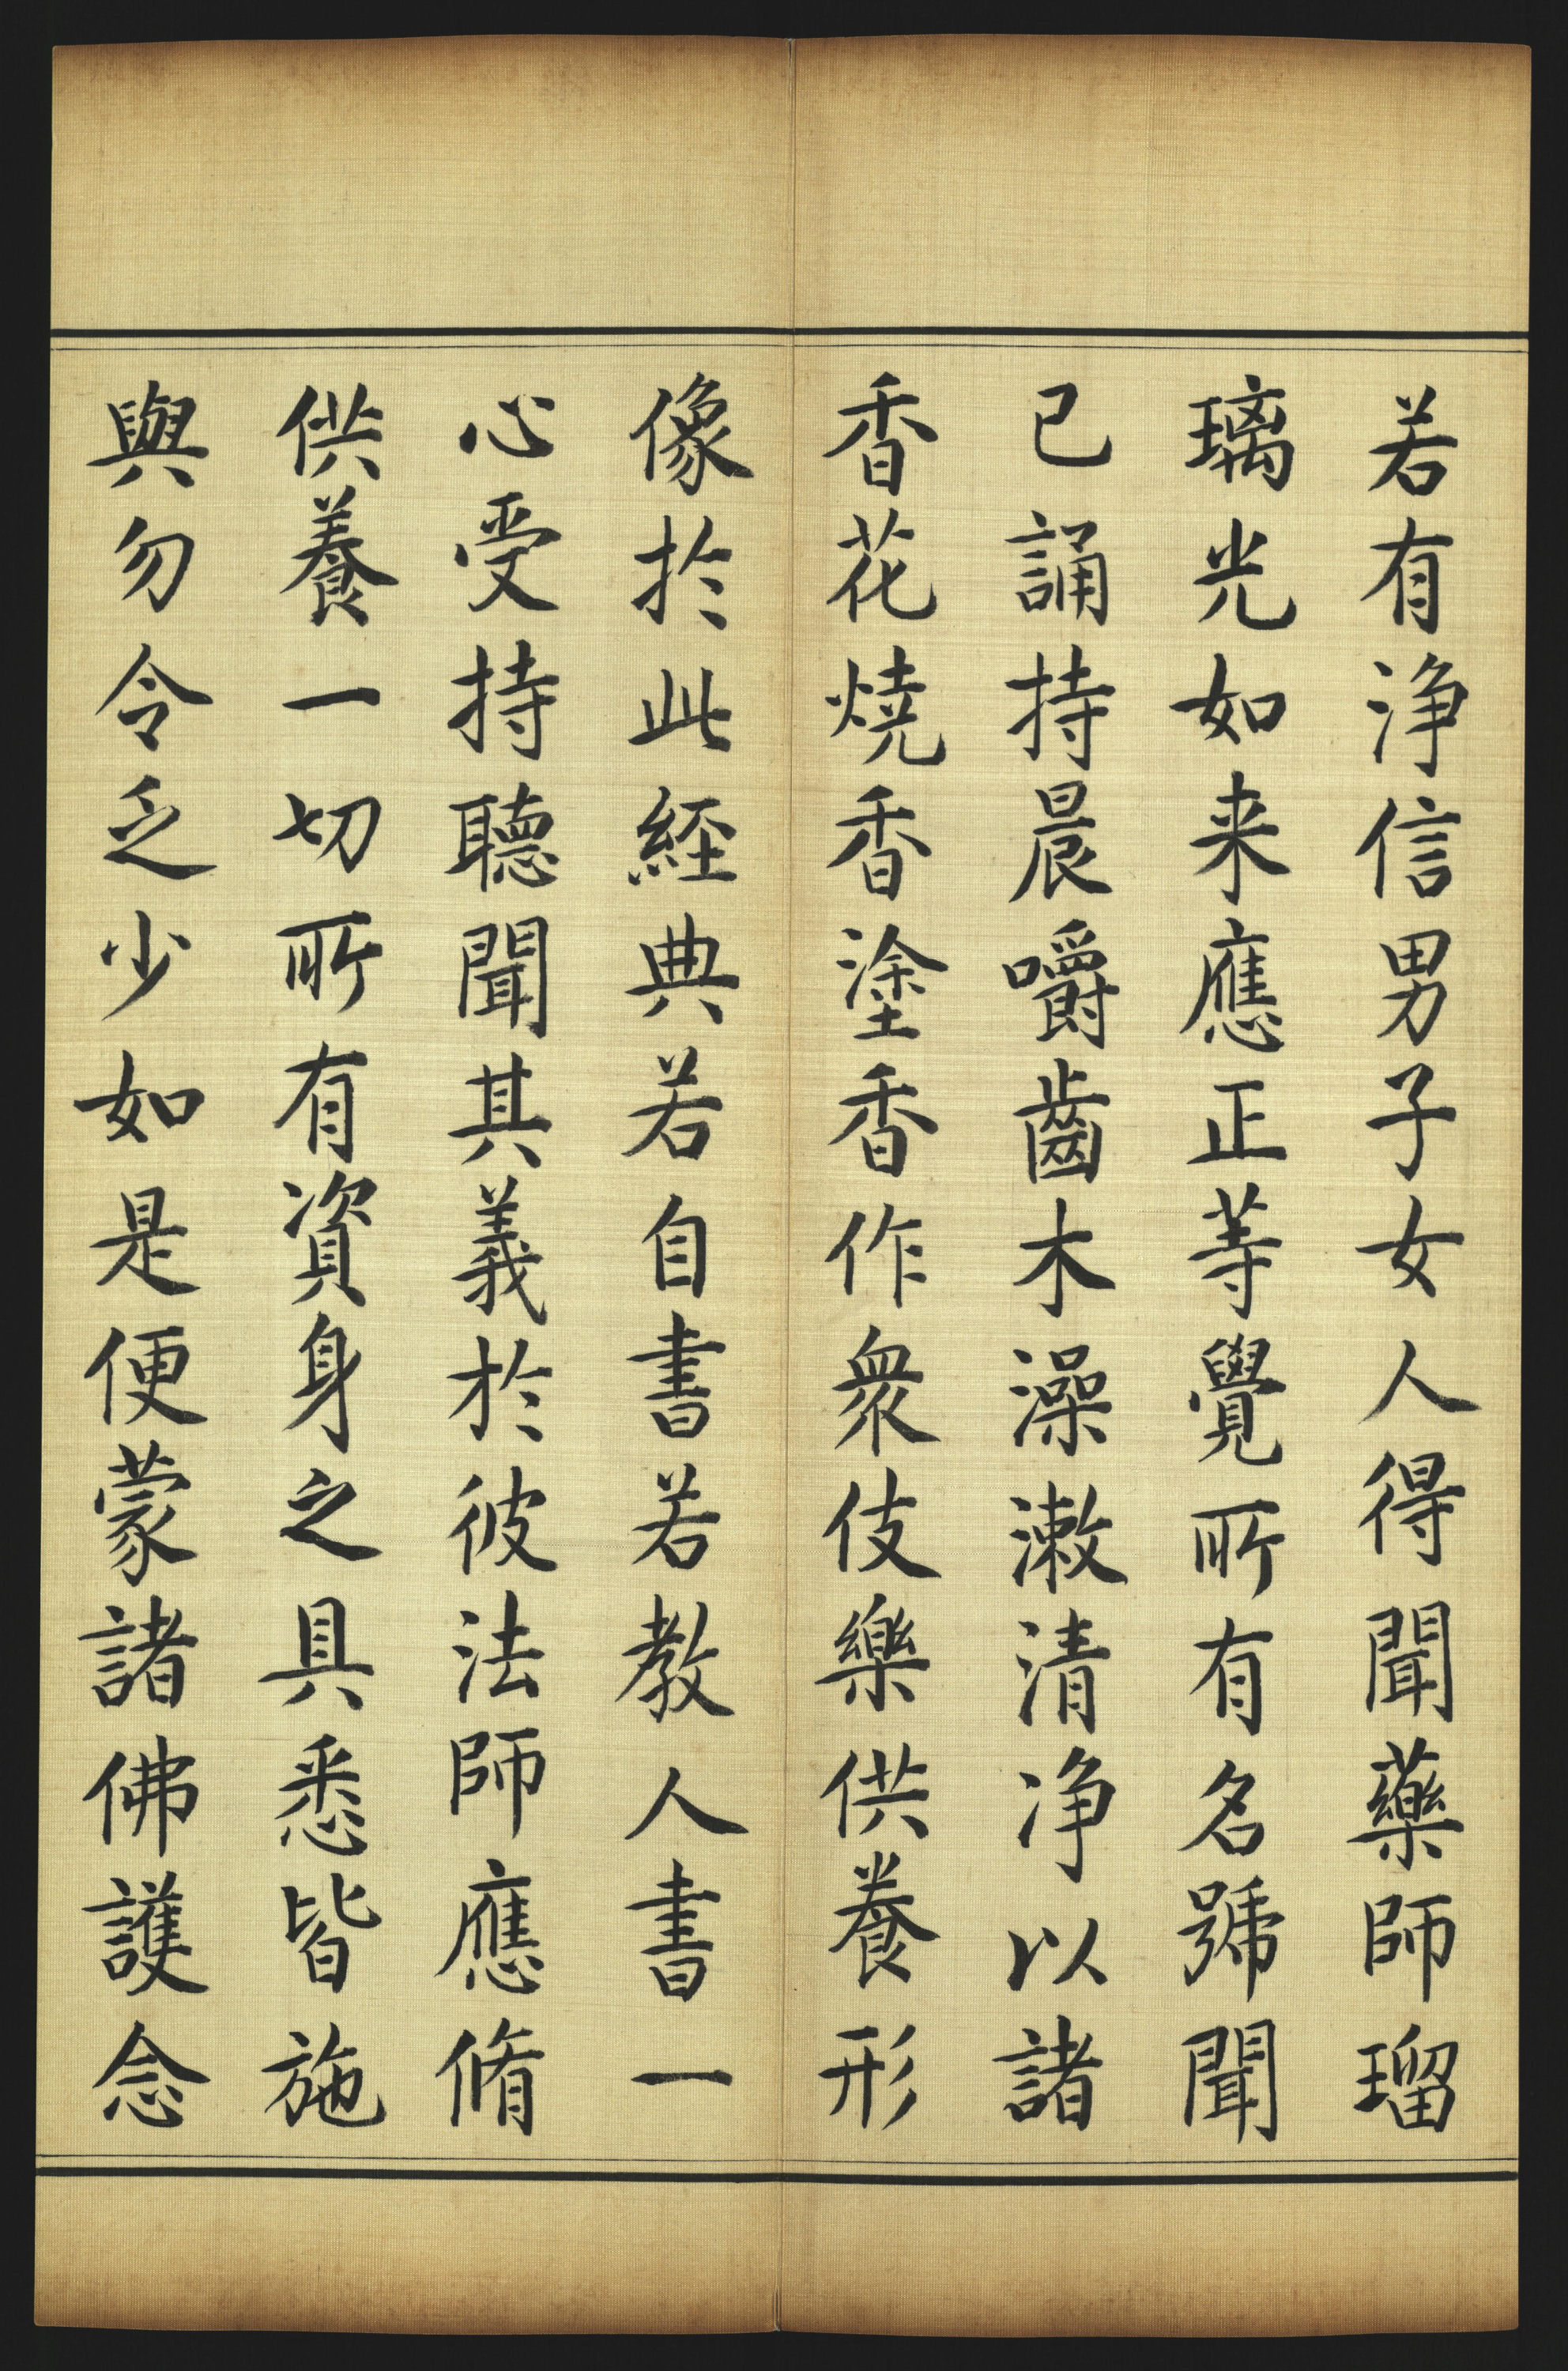 若有淨信男子女人得聞藥師瑠
璃光如来應正等覺所有名號聞
已誦持晨嚼齒木澡漱清淨以諸
香花燒香塗香作衆伎樂供養形
像於此經典若自書若教人書一
心受持聽聞其義於彼法師應脩
供養一切所有資身之具悉皆施
與勿令乏少如是便蒙諸佛護念